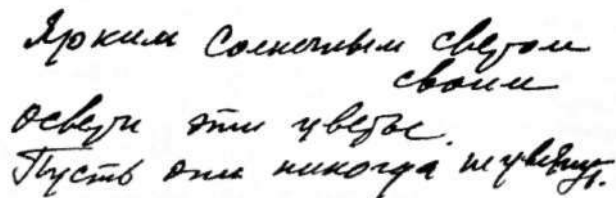 Ярким солнечным светом
своим
освети эти цветы.
Пусть они никогда не увянут.